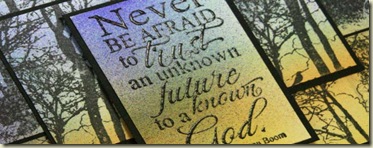 Never
BE AFRAID
to trust
an unknown
future
to a known
God.
Boom